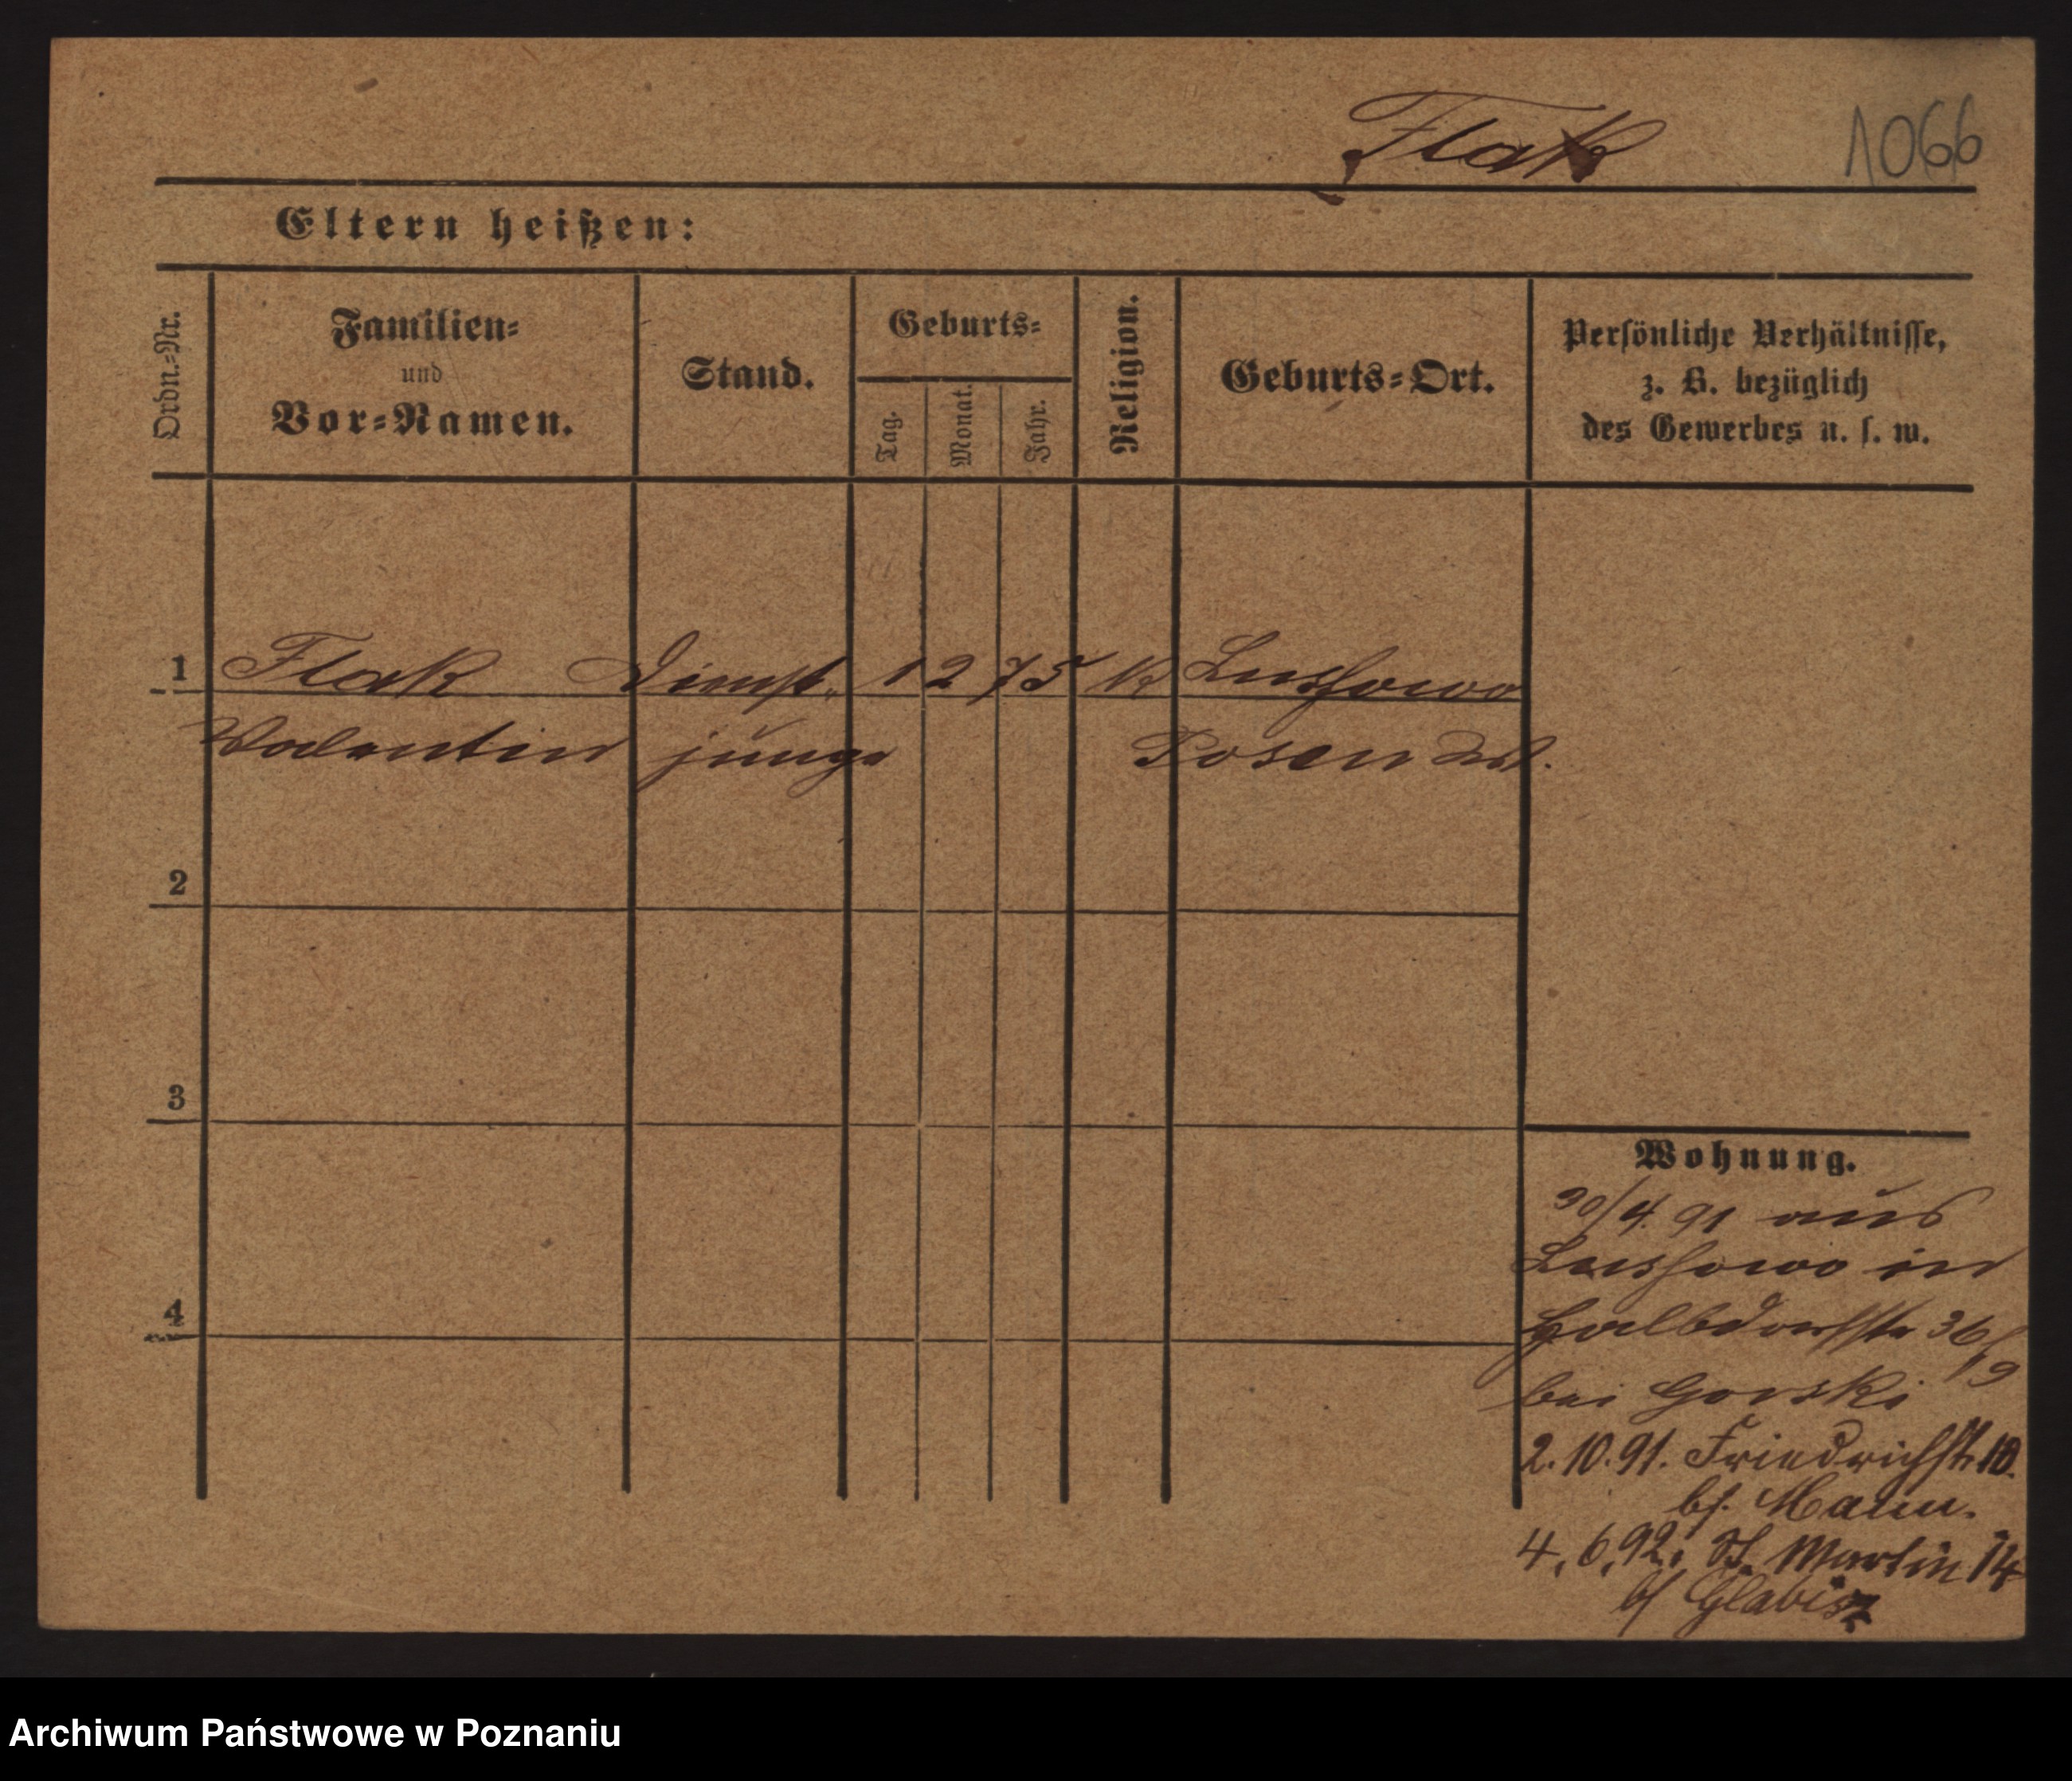 Flak 1066
Eltern heißen:
Ordn.-Nr.
Familien-
und
Vor-Namen.
Stand.
Geburts-
Tag.
Monat.
Jahr.
Religion.
Geburts-Ort.
Persönliche Verhältnisse,
z. B. bezüglich
des Gewerbes u. s. w.
1 Flak Dienst- 12 75 K Lussowo
Valentin junge Posen West.
2
3
4
Wohnung.
30/4. 91 aus
Lussowo in
Halbdorfstr 36/
19
bei Gorski
2.10.91. Friedrichstr 10.
bf. Mann.
4.6.92. St. Martin 14
bf Glabisz
Archiwum Państwowe w Poznaniu